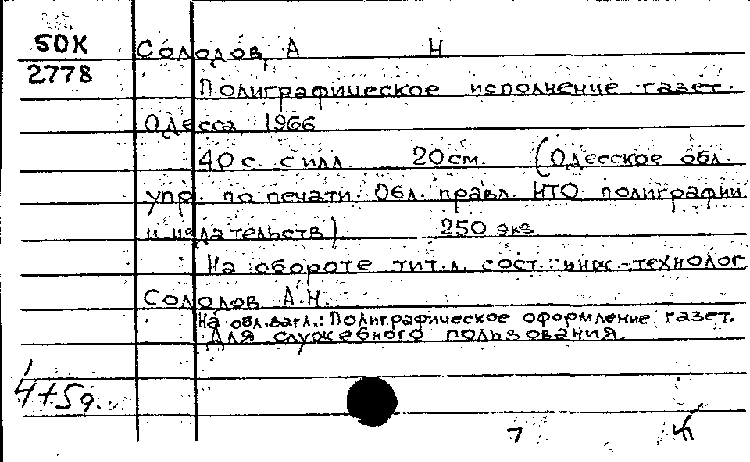 50К Солодов, А Н
2778 Полиграфическое исполнение газет.
Одесса, 1966
40с. с илл. 20см. (Одесское обл.
упр. по печати. Обл. правл. НТО полиграфии
и издательств). 250 экз.
На обороте тит.л. сост.: инж.-технолог
Солодов А.Н.
На обл. загл.: Полиграфическое оформление газет.
Для служебного пользования.
4+5д.